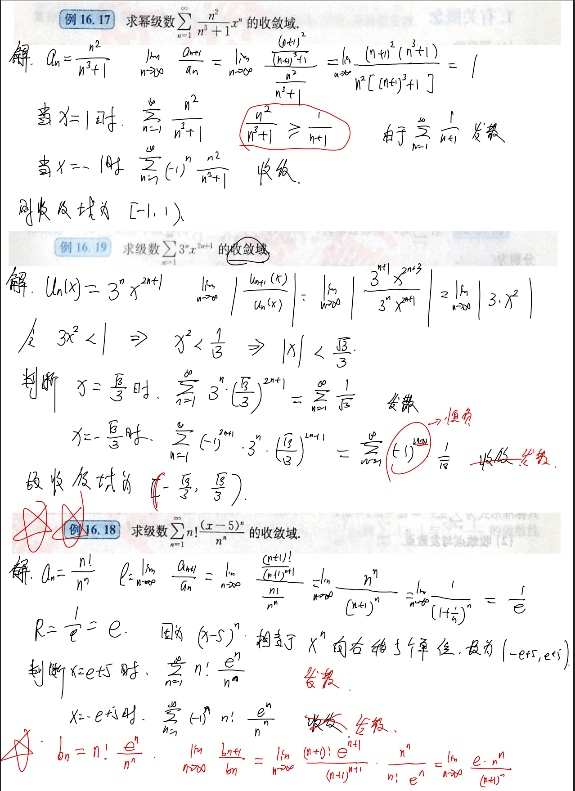 例 16.17 求幂级数 $\sum_{n=1}^{\infty} \frac{n^2}{n^3+1} x^n$ 的收敛域.
解. $a_n = \frac{n^2}{n^3+1}$ $\lim_{n\to\infty} \frac{a_{n+1}}{a_n} = \lim_{n\to\infty} \frac{\frac{(n+1)^2}{(n+1)^3+1}}{\frac{n^2}{n^3+1}} = \lim_{n\to\infty} \frac{(n+1)^2(n^3+1)}{n^2[(n+1)^3+1]} = 1$
当 x=1时. $\sum_{n=1}^{\infty} \frac{n^2}{n^3+1}$ $\frac{n^2}{n^3+1} \geq \frac{1}{n+1}$ 由于 $\sum_{n=1}^{\infty} \frac{1}{n+1}$ 发散
当 x=-1时 $\sum_{n=1}^{\infty} (-1)^n \frac{n^2}{n^3+1}$ 收敛.
则收敛域为 [-1,1).
例 16.19 求级数 $\sum_{n=1}^{\infty} 3^n x^{2n+1}$ 的收敛域.
解. $u_n(x) = 3^n x^{2n+1}$ $\lim_{n\to\infty} \left| \frac{u_{n+1}(x)}{u_n(x)} \right| = \lim_{n\to\infty} \left| \frac{3^{n+1} x^{2n+3}}{3^n x^{2n+1}} \right| = \lim_{n\to\infty} |3 \cdot x^2|$
令 $3x^2 < 1 \Rightarrow x^2 < \frac{1}{3} \Rightarrow |x| < \frac{\sqrt{3}}{3}$.
判断 $x = \frac{\sqrt{3}}{3}$ 时. $\sum_{n=1}^{\infty} 3^n \cdot (\frac{\sqrt{3}}{3})^{2n+1} = \sum_{n=1}^{\infty} \frac{1}{\sqrt{3}}$ 发散
$x = -\frac{\sqrt{3}}{3}$ 时. $\sum_{n=1}^{\infty} (-1)^{2n+1} \cdot 3^n \cdot (\frac{\sqrt{3}}{3})^{2n+1} = \sum_{n=1}^{\infty} (-1)^{2n+1} \frac{1}{\sqrt{3}}$ 收敛 发散. → 恒负
故收敛域为 $(-\frac{\sqrt{3}}{3}, \frac{\sqrt{3}}{3})$.
例 16.18 求级数 $\sum_{n=1}^{\infty} n! \frac{(x-5)^n}{n^n}$ 的收敛域.
解. $a_n = \frac{n!}{n^n}$ $\ell = \lim_{n\to\infty} \frac{a_{n+1}}{a_n} = \lim_{n\to\infty} \frac{\frac{(n+1)!}{(n+1)^{n+1}}}{\frac{n!}{n^n}} = \lim_{n\to\infty} \frac{n^n}{(n+1)^n} = \lim_{n\to\infty} \frac{1}{(1+\frac{1}{n})^n} = \frac{1}{e}$
$R = \frac{1}{\ell} = e$. 因为 $(x-5)^n$ 相当于 $x^n$ 向右移5个单位. 故为 (-e+5, e+5)
判断 x=e+5 时. $\sum_{n=1}^{\infty} n! \frac{e^n}{n^n}$ 发散.
x=-e+5时. $\sum_{n=1}^{\infty} (-1)^n n! \frac{e^n}{n^n}$ 收敛 发散.
$b_n = n! \frac{e^n}{n^n}$. $\lim_{n\to\infty} \frac{b_{n+1}}{b_n} = \lim_{n\to\infty} \frac{(n+1)! e^{n+1}}{(n+1)^{n+1}} \cdot \frac{n^n}{n! e^n} = \lim_{n\to\infty} \frac{e \cdot n^n}{(n+1)^n}$